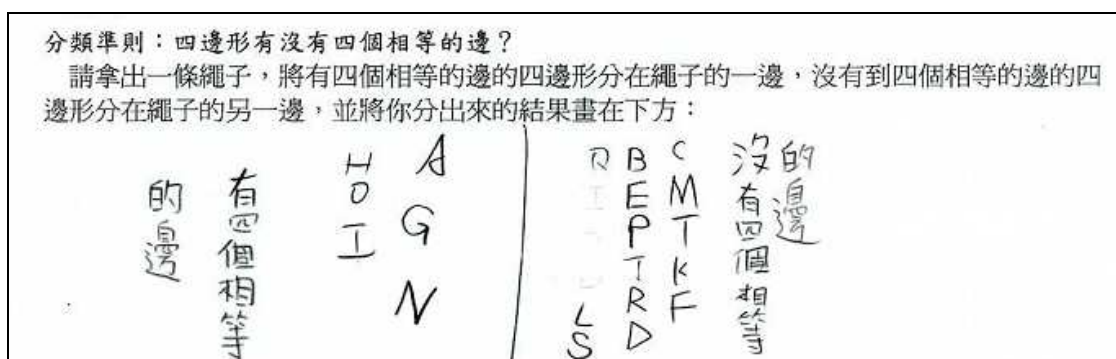 分類準則：四邊形有沒有四個相等的邊？
請拿出一條繩子，將有四個相等的邊的四邊形分在繩子的一邊，沒有到四個相等的邊的四
邊形分在繩子的另一邊，並將你分出來的結果畫在下方：
有四個相等
的邊
A
G
N
H
O
I
沒有四個相等
的邊
C
M
T
K
F
B
E
P
T
R
D
Q
L
S